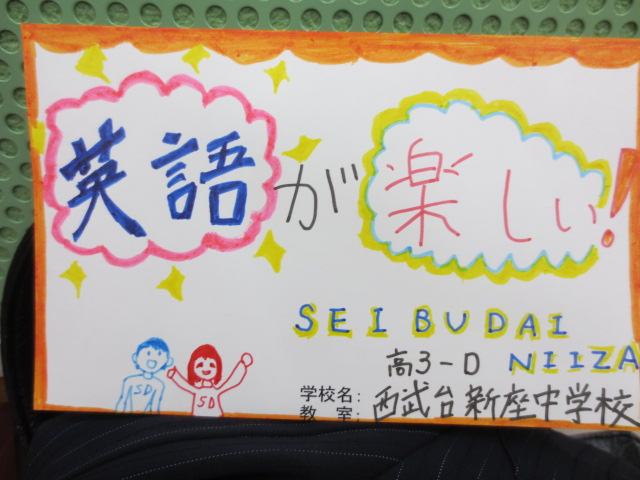 英語が楽しい!
SEIBUDAI
高3-D NIIZA
学校名: 西武台新座中学校
教室:
SD
SD